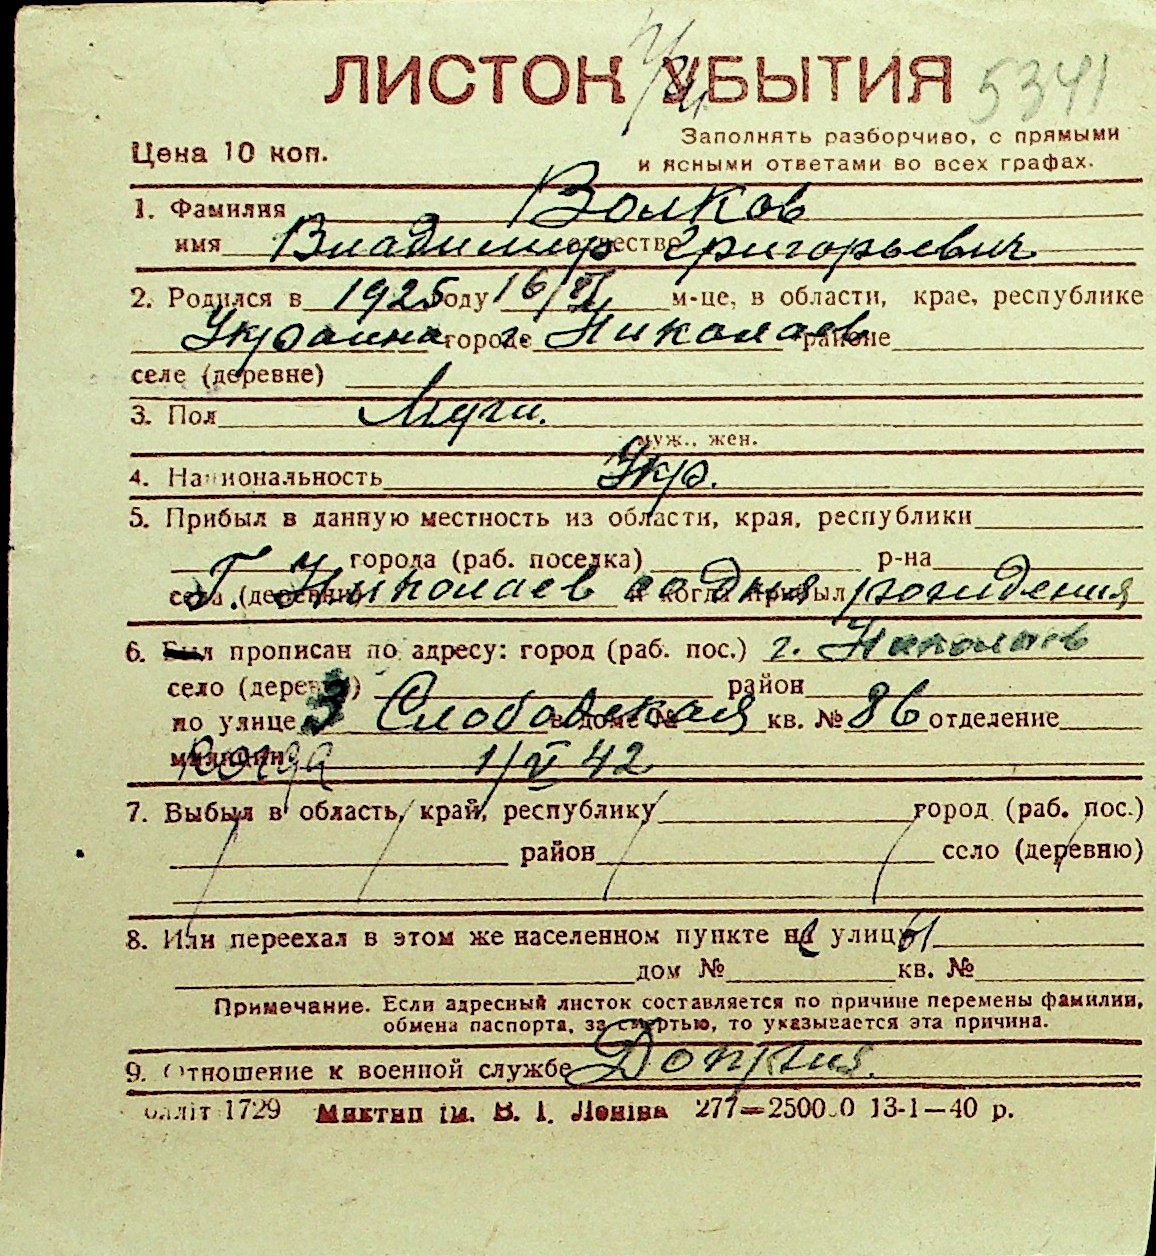 ЛИСТОК УБЫТИЯ 5341
Цена 10 коп.
Заполнять разборчиво, с прямыми
и ясными ответами во всех графах.
1. Фамилия Волков
имя Владимир отчество Григорьевич
2. Родился в 1925 году 16/VI м-це, в области, крае, республике
Украина городе г. Николаев районе
селе (деревне)
3. Пол Муж.
муж., жен.
4. Национальность Укр.
5. Прибыл в данную местность из области, края, республики
города (раб. поселка) р-на
села (деревни) Г. Николаев и когда прибыл со дня рождения
6. Был прописан по адресу: город (раб. пос.) г. Николаев
село (деревня) район
по улице 3 Слободская в доме № кв. № 86 отделение
милиции когда 1/V 42
7. Выбыл в область, край, республику город (раб. пос.)
район село (деревню)
8. Или переехал в этом же населенном пункте на улицу
дом № кв. №
Примечание. Если адресный листок составляется по причине перемены фамилии,
обмена паспорта, за смертью, то указывается эта причина.
9. Отношение к военной службе
1729 Миктип ім. В. І. Леніна 277—2500.0 13-1—40 р.